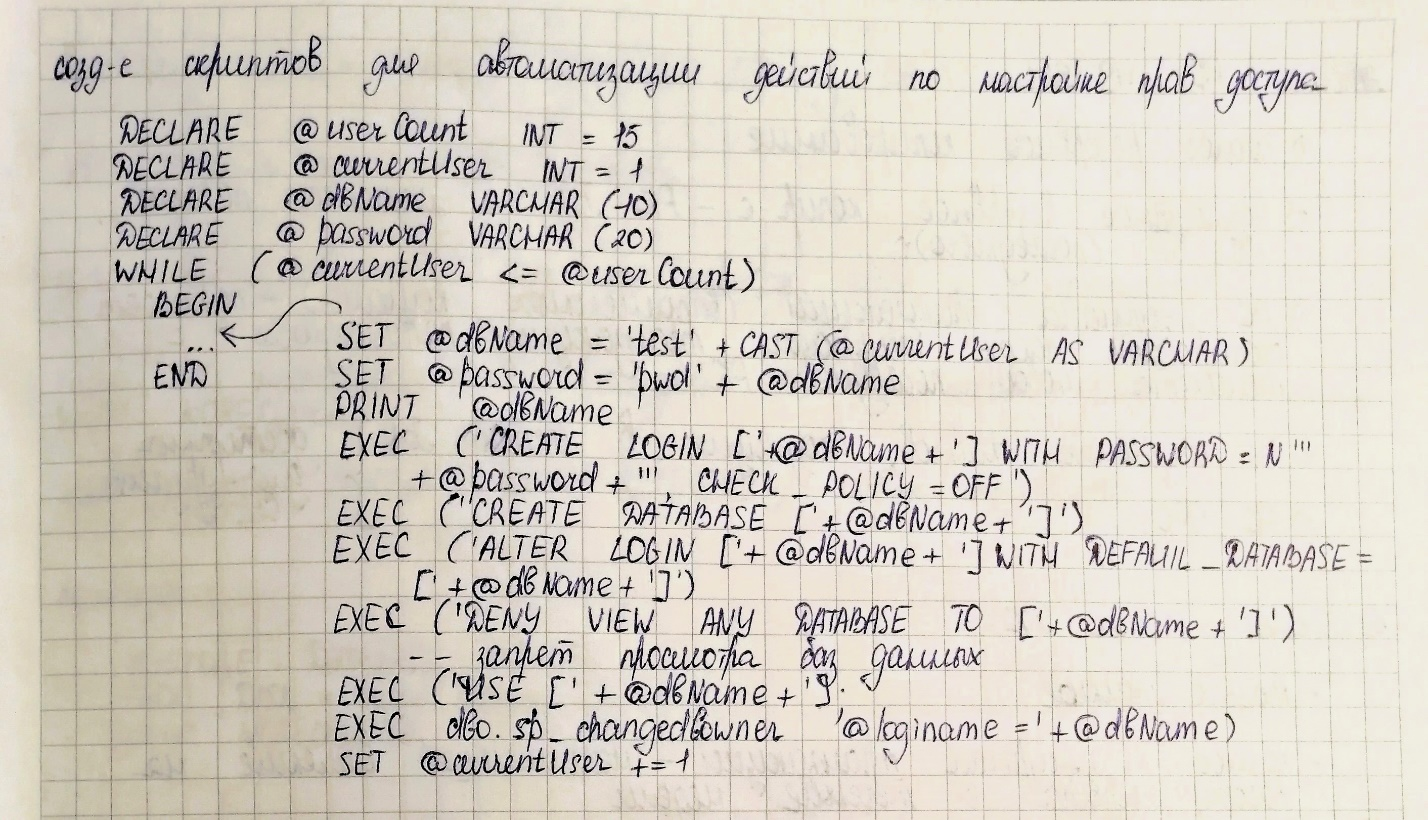 созд-е скриптов для автоматизации действий по настройке прав доступа
DECLARE @userCount INT = 15
DECLARE @currentUser INT = 1
DECLARE @dbName VARCHAR (10)
DECLARE @password VARCHAR (20)
WHILE (@currentUser <= @userCount)
BEGIN
...
END
SET @dbName = 'test' + CAST (@currentUser AS VARCHAR)
SET @password = 'pwd' + @dbName
PRINT @dbName
EXEC ('CREATE LOGIN ['+@dbName+'] WITH PASSWORD = N'''
+@password+''', CHECK_POLICY = OFF')
EXEC ('CREATE DATABASE ['+@dbName+']')
EXEC ('ALTER LOGIN ['+@dbName+'] WITH DEFAUIL_DATABASE =
['+@dbName+']')
EXEC ('DENY VIEW ANY DATABASE TO ['+@dbName+']')
-- запрет просмотра баз данных
EXEC ('USE ['+@dbName+'].
EXEC dbo.sp_changedbowner '@loginame ='+@dbName)
SET @currentUser += 1